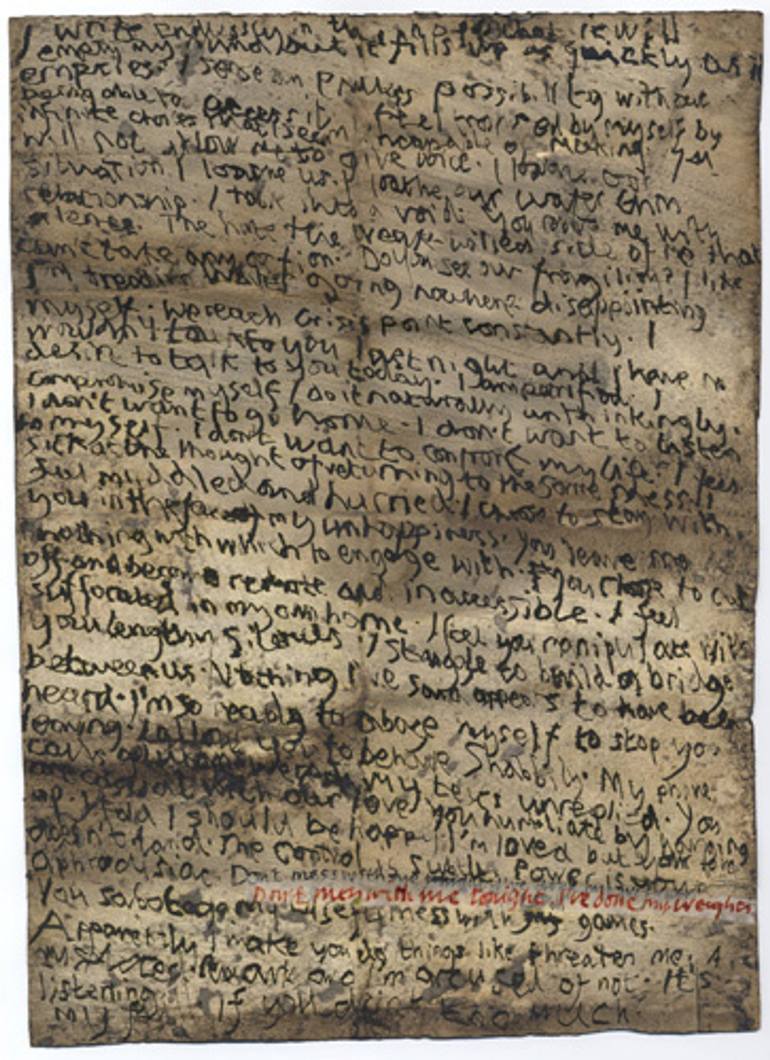 I write endlessly in the hope that it will
empty my mind but it fills up as quickly as it
empties. I sense an endless possibility without
being able to access it. I feel
infinite choices I incapable of making. You
will not allow me to give voice. I loathe our
situation I loathe us. I loathe our water thin
relationship. I talk into a void. You me with
silence. The hate the weak willed side of me that
can't take any action. Do you see our fragility? I like
I'm treading water going nowhere disappointing
myself. We reach crisis point constantly. I
wouldn't talk to you last night and I have no
desire to talk to you today. I am petrified. I
compromise myself I do it naturally unthinkingly.
I don't want to go home. I don't want to listen
to myself. I don't want to control my life. I feel
sick at the thought of returning to the same mess. I
feel muddled and hurried. I choose to stay with
you in the face of my unhappiness. You leave me
nothing with which to engage with. If you choose to cut
off and become remote and inaccessible. I feel
suffocated in my own home. I feel you manipulate with
your lengthy silences. I struggle to build a bridge
between us. Nothing I've said appears to have been
heard. I'm so ready to abase myself to stop you
leaving. I allow you to behave shabbily. My phone
calls my texts unreplied. You
casual with our love. You humiliate by hanging
up. I should be happy I'm loved but your love
doesn't land. The control. Subtle power is your
aphrodisiac. Don't mess with me
Don't mess with me tonight. I've done my weights.
You sabotage my usefulness with games.
Apparently I make you do things like threaten me. A
remark and I'm aroused or not. It's
listening
my If you don't too much.